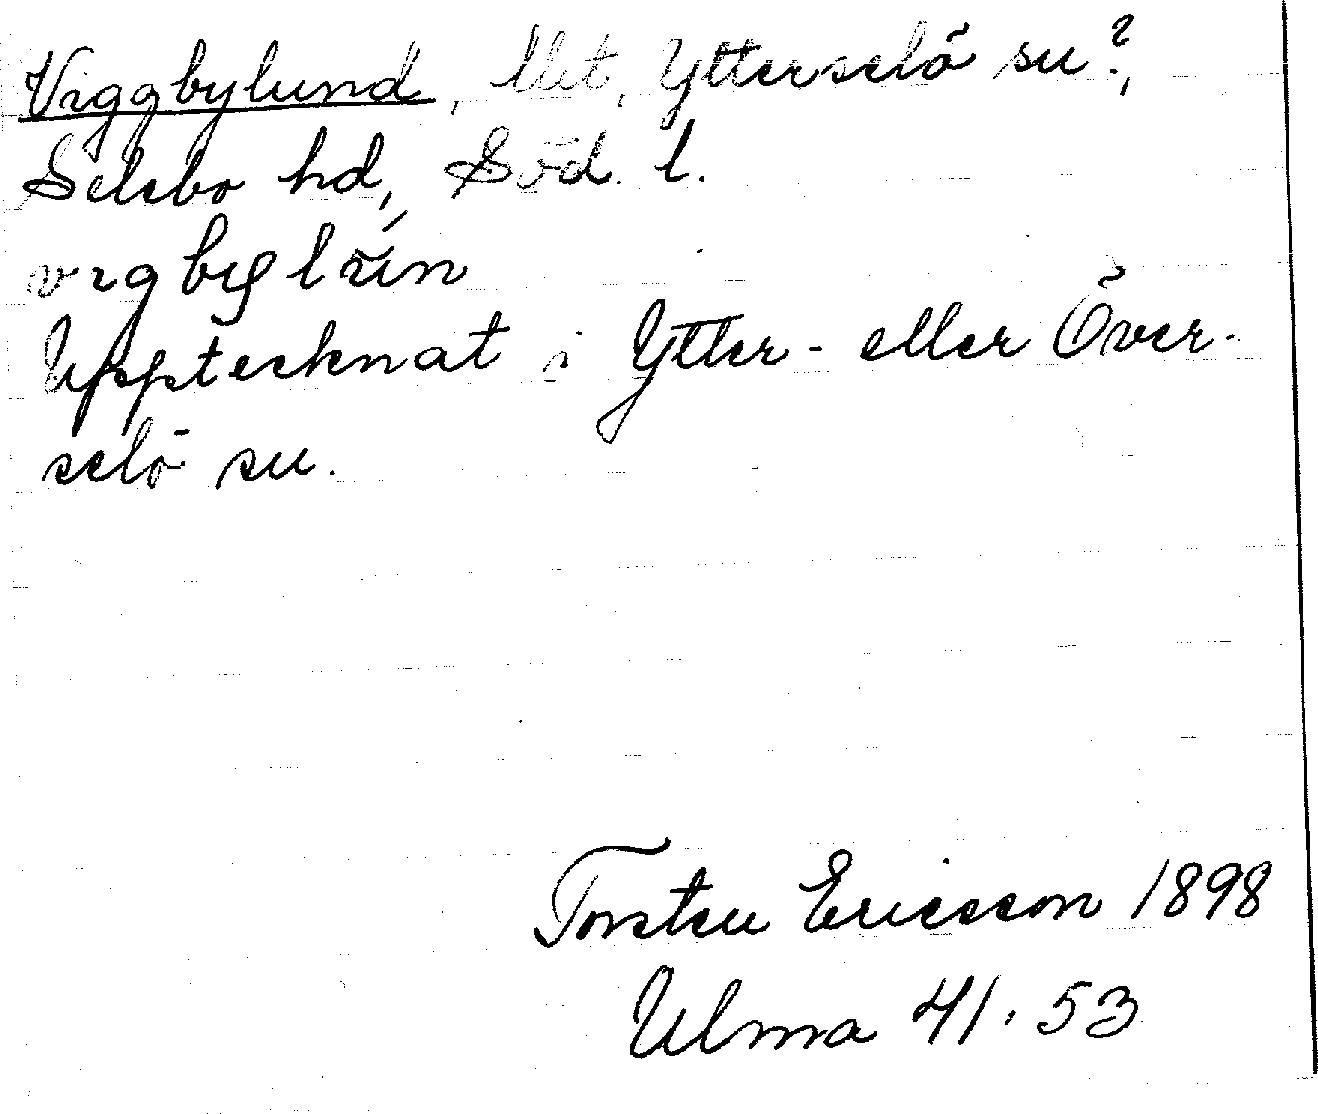 Viggbylund, Ytterselö su?,
Selebo hd, Söd. l.
Upptecknat i Ytter- eller Över-
selö su.
Torsten Ericsson 1898
Ulma 41:53